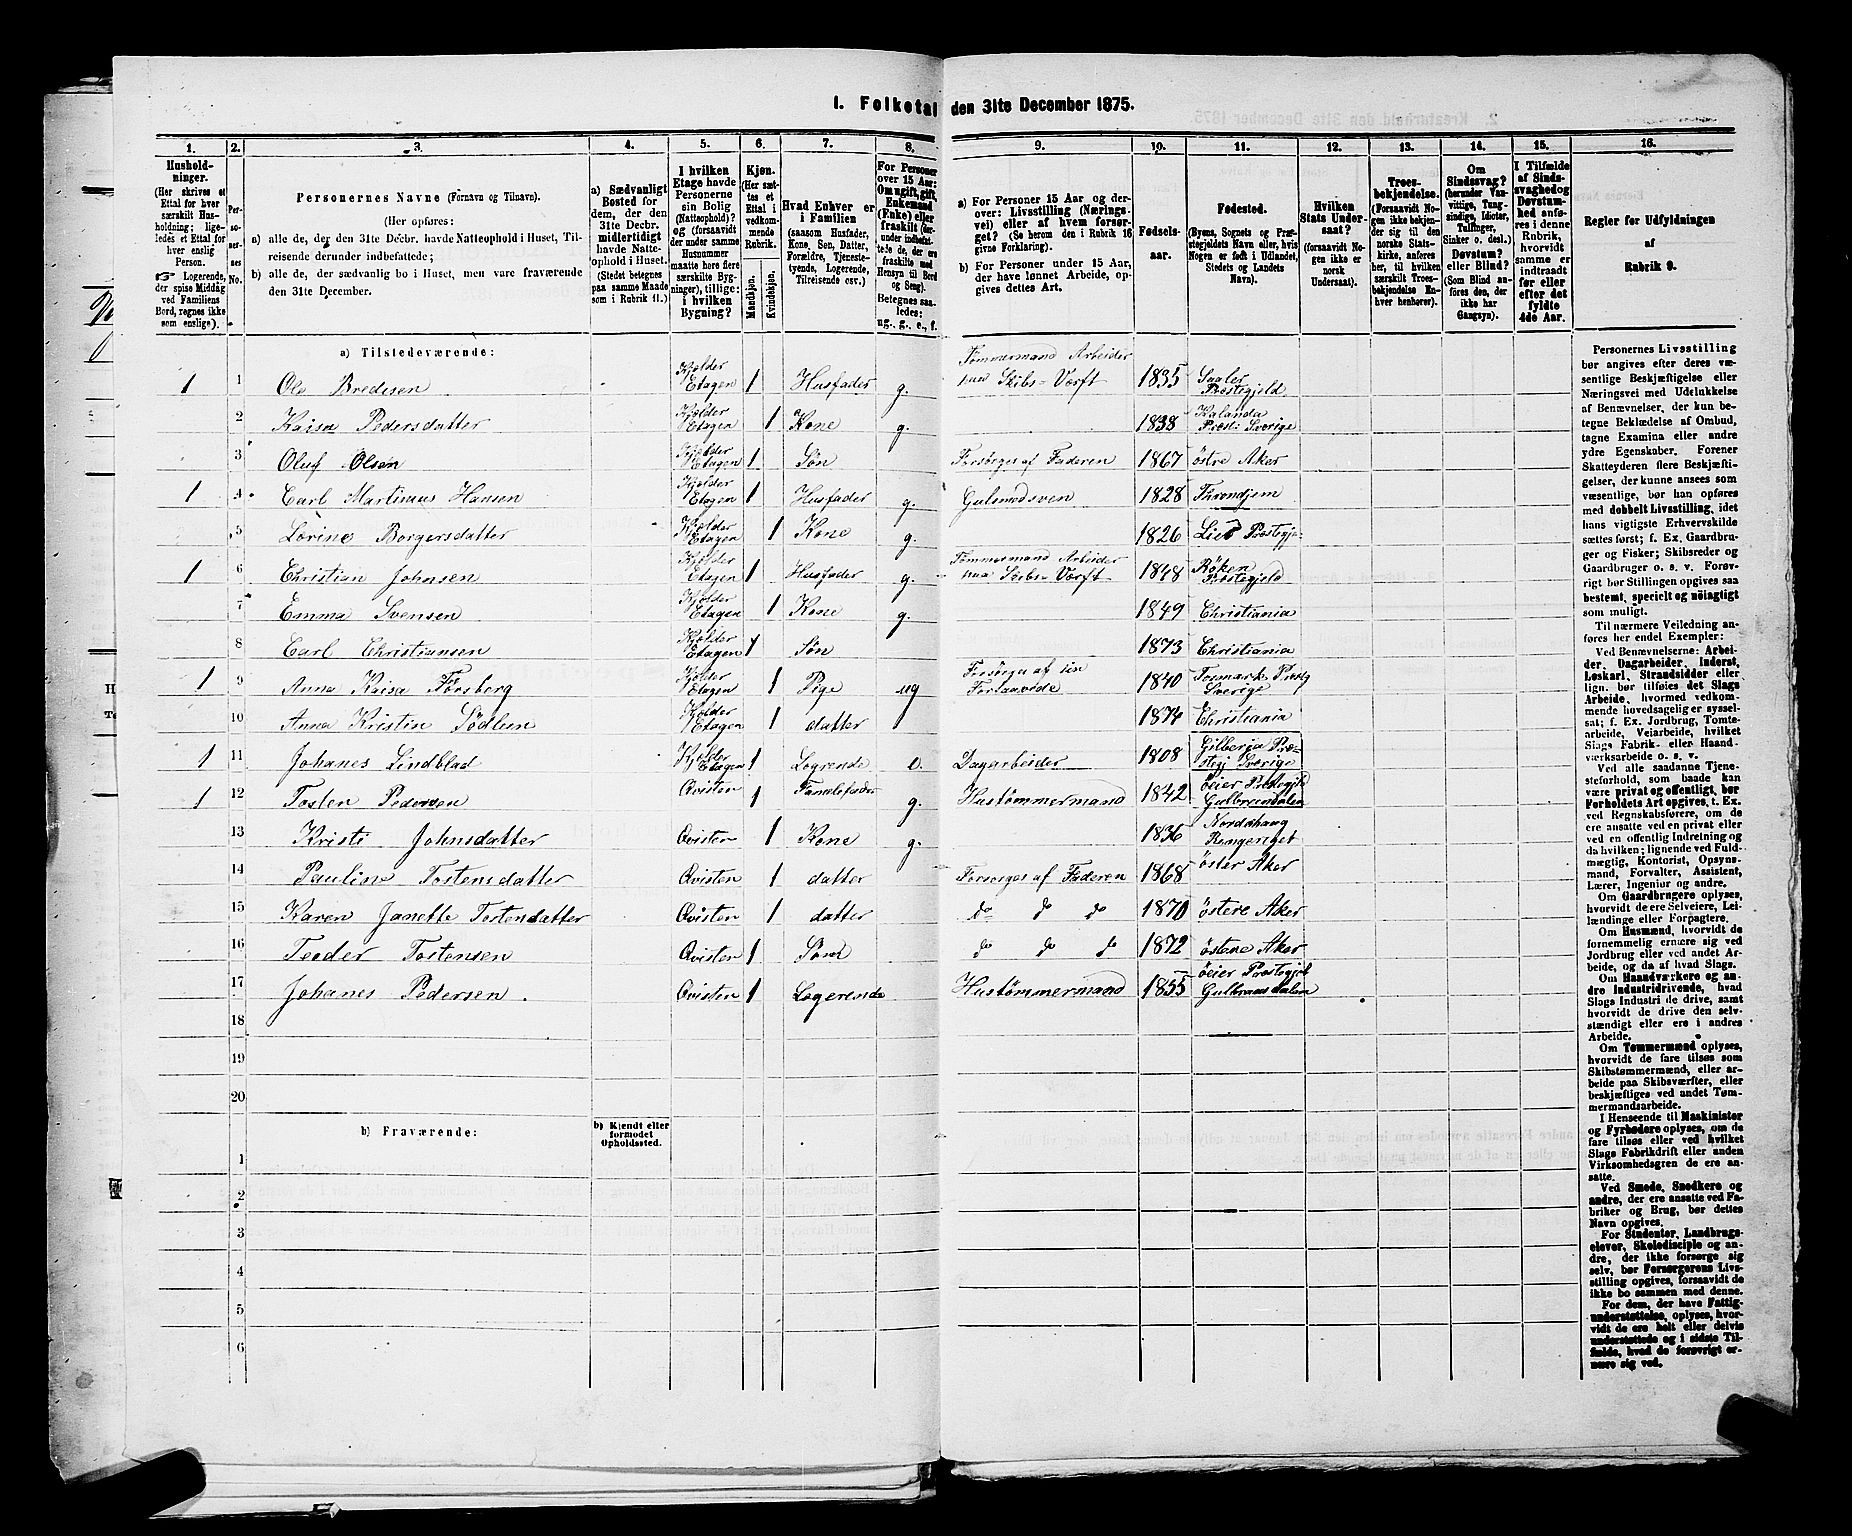 1. Folketal den 31te December 1875.
1. 2. 3. 4. 5. 6. 7. 8. 9. 10. 11. 12. 13. 14. 15. 16.
Hushold-
ninger.
(Her skrives et
Ettal for hver
særskilt Hus-
holdning; lige-
ledes et Ettal for
hver enslig
Person.
☞ Logerende,
der spise Middag
ved Familiens
Bord, regnes ikke
som enslige).
Per-
so-
ner-
nes
No.
Personernes Navne (Fornavn og Tilnavn).
(Her opføres:
a) alle de, der den 31te Decbr. havde Natteophold i Huset, Til-
reisende derunder indbefattede;
b) alle de, der sædvanlig bo i Huset, men vare fraværende
den 31te December.
a) Sædvanligt
Bosted for
dem, der den
31te Decbr.
midlertidigt
havde Natte-
ophold i Huset.
(Stedet betegnes
paa samme Maade
som i Rubrik 11.)
I hvilken
Etage havde
Personerne
sin Bolig
(Natteophold)?
og (forsaavidt
der under samme
Husnummer
maatte høre flere
særskilte Byg-
ninger), tillige:
i hvilken
Bygning?
Kjøn.
(Her sæt-
tes et
Ettal i
vedkom-
mende
Rubrik.
Mandkjøn.
Kvindekjøn.
Hvad Enhver er
i Familien
(saasom Husfader,
Kone, Søn, Datter,
Forældre, Tjeneste-
tyende, Logerende,
Tilreisende osv.)
For Personer
over 15 Aar:
Om ugift, gift,
Enkemand
(Enke) eller
fraskilt (her-
under indbefat-
tede de, der ere
fraskilte med
Hensyn til Bord
og Seng).
Betegnes saa-
ledes:
ug., g., e., f.
a) For Personer 15 Aar og der-
over: Livsstilling (Nærings-
vei) eller af hvem forsør-
get? (Se herom den i Rubrik 16
givne Forklaring).
b) For Personer under 15 Aar,
der have lønnet Arbeide, op-
gives dettes Art.
Fødsels-
aar.
Fødested.
(Byens, Sognets og Præ-
stegjeldets Navn eller, hvis
Nogen er født i Udlandet,
Stedets og Landets
Navn).
Hvilken
Stats Under-
saat?
(forsaavidt No-
gen ikke er
norsk
Undersaat).
Troes-
bekjendelse.
(Forsaavidt No-
gen ikke bekjen-
der sig til den
norske Stats-
kirke, anføres
her, til hvilken
særskilt Troes-
bekjendelse En-
hver henhører).
Om
Sindssvag?
(herunder Van-
vittige, Tung-
sindige, Idioter,
Tullinger,
Sinker o. desl.)
Døvstum?
eller Blind?
(Som Blind an-
føres den, der
ikke har
Gangsyn).
I Tilfælde
af Sinds-
svaghed og
Døvstum-
hed anfø-
res i denne
Rubrik,
hvorvidt
samme er
indtraadt
før eller
efter det
fyldte
4de Aar.
Regler for Udfyldningen
af
Rubrik 9.
a) Tilstedeværende:
1 1 Ole Bredesen Kjælder Etagen 1 Husfader g. Tømmermand Arbeider paa Skibs-Værft 1835 Præstegjeld
2 Kaisa Pedersdatter Kjælder Etagen 1 Kone g. 1838 Kalanda Præst: Sverige
3 Oluf Olsen Kjælder Etagen 1 Søn Forsørges af Faderen 1867 østre Aker
1 4 Carl Martinus Hansen Kjælder Etagen 1 Husfader g. 1828 Throndjem
5 Lorine Borgersdatter Kjælder Etagen 1 Kone g. 1826 Lier Præstegj:
1 6 Christian Johnsen Kjælder Etagen 1 Husfader g. Tømmermand Arbeider paa Skibs-Værft 1848 Röken Præstegjeld
7 Emma Svensen Kjælder Etagen 1 Kone g. 1849 Christiania
8 Carl Christiansen Kjælder Etagen 1 Søn 1873 Christiania
1 9 Anna Kaisa Forsberg Kjælder Etagen 1 Pige ug Forsørges af sin Forlaavede 1840 Fosmark Præstg Sverige
10 Anna Kristin Södleen Kjælder Etagen 1 datter 1874 Christiania
1 11 Johanes Lindblad Kjelder Etagen 1 Logrende e. Dagarbeider 1808 Gilberga Præ- stegj Sverige
1 12 Tosten Pedersen Qvisten 1 Familefader g. Hustømmermand 1842 öeier Præstegjeld Gulbransdalen
13 Kristi Johnsdatter Qvisten 1 Kone g. 1836 Nordahaug Ringeriget
14 Pauline Tostensdatter Qvisten 1 datter Forsorges af Faderen 1868 öster Aker
15 Karen Janette Tostendatter Qvisten 1 datter do do do 1870 östere Aker
16 Teoder Tostensen Qvisten 1 Sön do do do 1872 östere Aker
17 Johanes Pedersen. Qvisten 1 Logerende Hustømmermand 1855 öeier Præstegjel Gulbransdalen
18
19
20
b) Fraværende:
b) Kjendt eller
formodet
Opholdssted.
1
2
3
4
5
6
Personernes Livsstilling
bør angives efter deres væ-
sentlige Beskjæftigelse eller
Næringsvei med Udelukkelse
af Benævnelser, der kun be-
tegne Beklædelse af Ombud,
tagne Examina eller andre
ydre Egenskaber. Forener
Skatteyderen flere Beskjæfti-
gelser, der kunne ansees som
væsentlige, bør han opføres
med dobbelt Livsstilling, idet
hans vigtigste Erhvervskilde
sættes først; f. Ex. Gaardbru-
ger og Fisker; Skibsreder og
Gaardbruger o. s. v. Forøv-
rigt bør Stillingen opgives saa
bestemt, specielt og nøiagtigt
som muligt.
Til nærmere Veiledning an-
føres her endel Exempler:
Ved Benævnelserne: Arbei-
der, Dagarbeider, Inderst,
Løskarl, Strandsidder eller
lign. bør tilføies det Slags
Arbeide, hvormed vedkom-
mende hovedsagelig er syssel-
sat; f. Ex. Jordbrug, Tomte-
arbeide, Veiarbeide, hvilket
Slags Fabrik- eller Haand-
værksarbeide o. s. v.
Ved alle saadanne Tjene-
steforhold, som baade kan
være privat og offentligt, bør
Forholdets Art opgives, t. Ex.
ved Regnskabsførere, om de
ere ansatte ved en privat eller
ved en offentlig Indretning og
da hvilken; lignende ved Fuld-
mægtig, Kontorist, Opsyns-
mand, Forvalter, Assistent,
Lærer, Ingeniør og andre.
Om Gaardbrugere oplyses,
hvorvidt de ere Selveiere, Lei-
lændinge eller Forpagtere.
Om Husmænd, hvorvidt de
fornemmelig ernære sig ved
Jordbrug eller ved andet Ar-
beide, og da af hvad Slags.
Om Haandværkere og an-
dre Industridrivende, hvad
Slags Industri de drive, samt
hvorvidt de drive den selv-
stændigt eller ere i andres
Arbeide.
Om Tømmermænd oplyses,
hvorvidt de fare tilsøs som
Skibstømmermænd, eller ar-
beide paa Skibsværfter, eller
beskjæftiges ved andet Tøm-
mermandsarbeide.
I Henseende til Maskinister
og Fyrbødere oplyses, om de
fare tilsøs eller ved hvilket
Slags Fabrikdrift eller anden
Virksomhedsgren de ere an-
satte.
Ved Smede, Snedkere og
andre, der ere ansatte ved Fa-
briker og Brug, bør dettes
Navn opgives.
For Studenter, Landbrugs-
elever, Skoledisciple og an-
dre, der ikke forsørge sig
selv, bør Forsørgerens Livs-
stilling opgives, forsaavidt de
ikke bo sammen med denne.
For dem, der have Fattig-
understøttelse, oplyses, hvor-
vidt de ere helt eller delvis
understøttede og i sidste Til-
fælde, hvad de forøvrigt er-
nære sig ved.